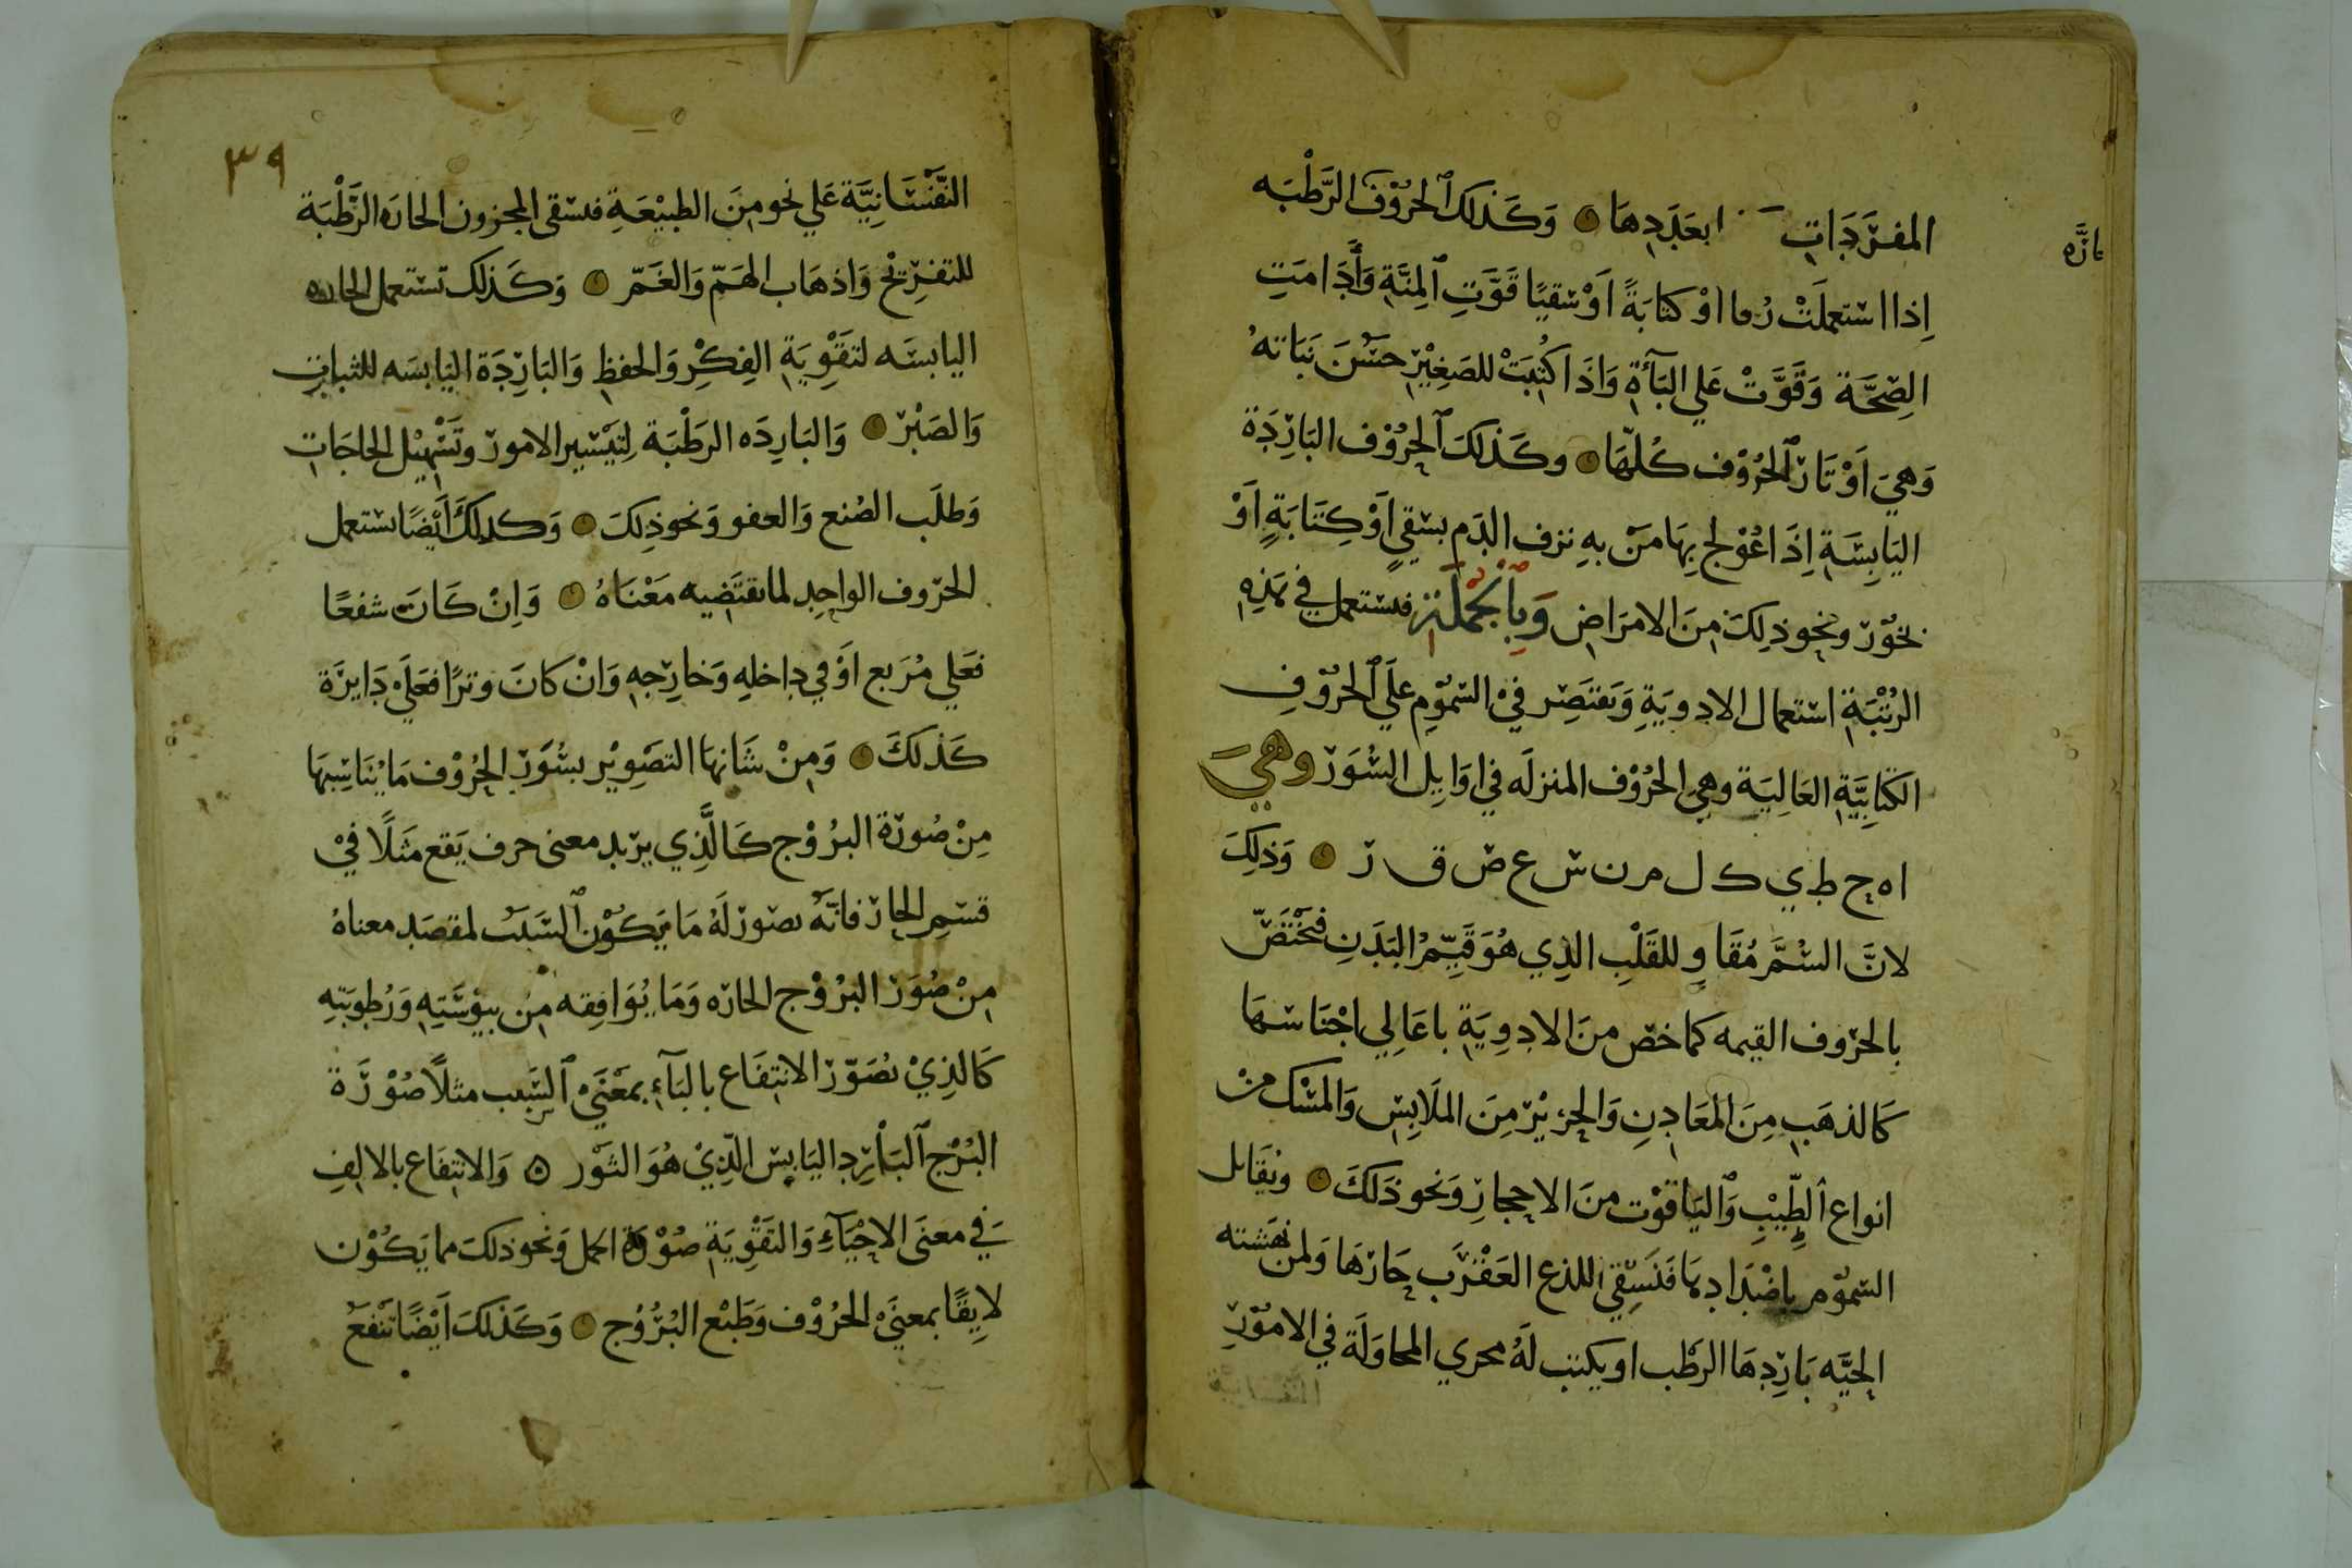 المفردات ابعددها وكذلك الحروف الرطبه
إذا استعملت رُما او كتابةً اوسقيًا قوّت المنّة وأدامت
الصِّحَّة وقوّت على الباءة واذا كُتبت للصغير حسُن نباته
وهي اوتار الحروف كلّها وكذلك الحروف الباردة
اليابسة اذا عُولج بها من به نزف الدم بسقيٍ او كتابةٍ او
بخور ونحو ذلك من الامراض وبالجملة فستعمل في هذه
الرتبة استعمال الادوية وتقتصر في السموم على الحروف
الكتابيّة العالية وهي الحروف المنزله في اوايل السُّور وهي
ا ه ح ط ي ك ل م ن س ع ص ق ر وذلك
لانّ السُّمَّ مُقاوٍ للقلب الذي هو قيّم البدن فتختصّ
بالحروف القيمه كما خص من الادوية باعالي اجناسها
كالذهب من المعادن والحرير من الملابس والمسك من
انواع الطّيب والياقوت من الاحجار ونحو ذلك ونقابل
السموم باضدادها فنسقي اللذع العقرب حارها ولمن نهشته
الحيَّه باردها الرطب او يكتب له مجري المحاولة في الامور
النفسانية
بارَّه
٣٩
النَّفْسَانِيَّة على نحو من الطبيعة فسقى المحزون الحاره الرَّطْبة
للتفريح واذهاب الهمّ والغمّ وكذلك تستعمل الحاره
اليابسه لتقوية الفكر والحفظ والباردة اليابسه للثبات
والصبر والبارده الرطبة لتيسير الامور وتسهيل الحاجات
وطلب الصُنع والعفو ونحو ذلك وكدلك أيضًا ستعمل
الحروف الواحد لما تقتضيه معناهُ وان كان شفعًا
فعلي مُربع او في داخله وخارجه وان كان وترًا فعلى دايرة
كذلك ومن شانها التصوير بسُور الحروف ما يناسبها
من صُورة البروج كالَّذي يريد معنى حرف يقع مثلًا في
قسم الحار فانّه تصور له ما يكون السّبب لمقصد معناه
من صُور البروج الحاره وما يُوافقه من يبوسته ورُطوبته
كالذي تُصوّر الانتفاع بالباء بمعنى السبب مثلًا صُورة
البُرْج البارد اليابس الّذي هو الثور ٥ والانتفاع بالالف
في معنى الاحياء والتقوية صُورة الحمل ونحو ذلك مما يكون
لايقًا بمعنى الحروف وطبع البُرُوج وكذلك ايضًا تنفع